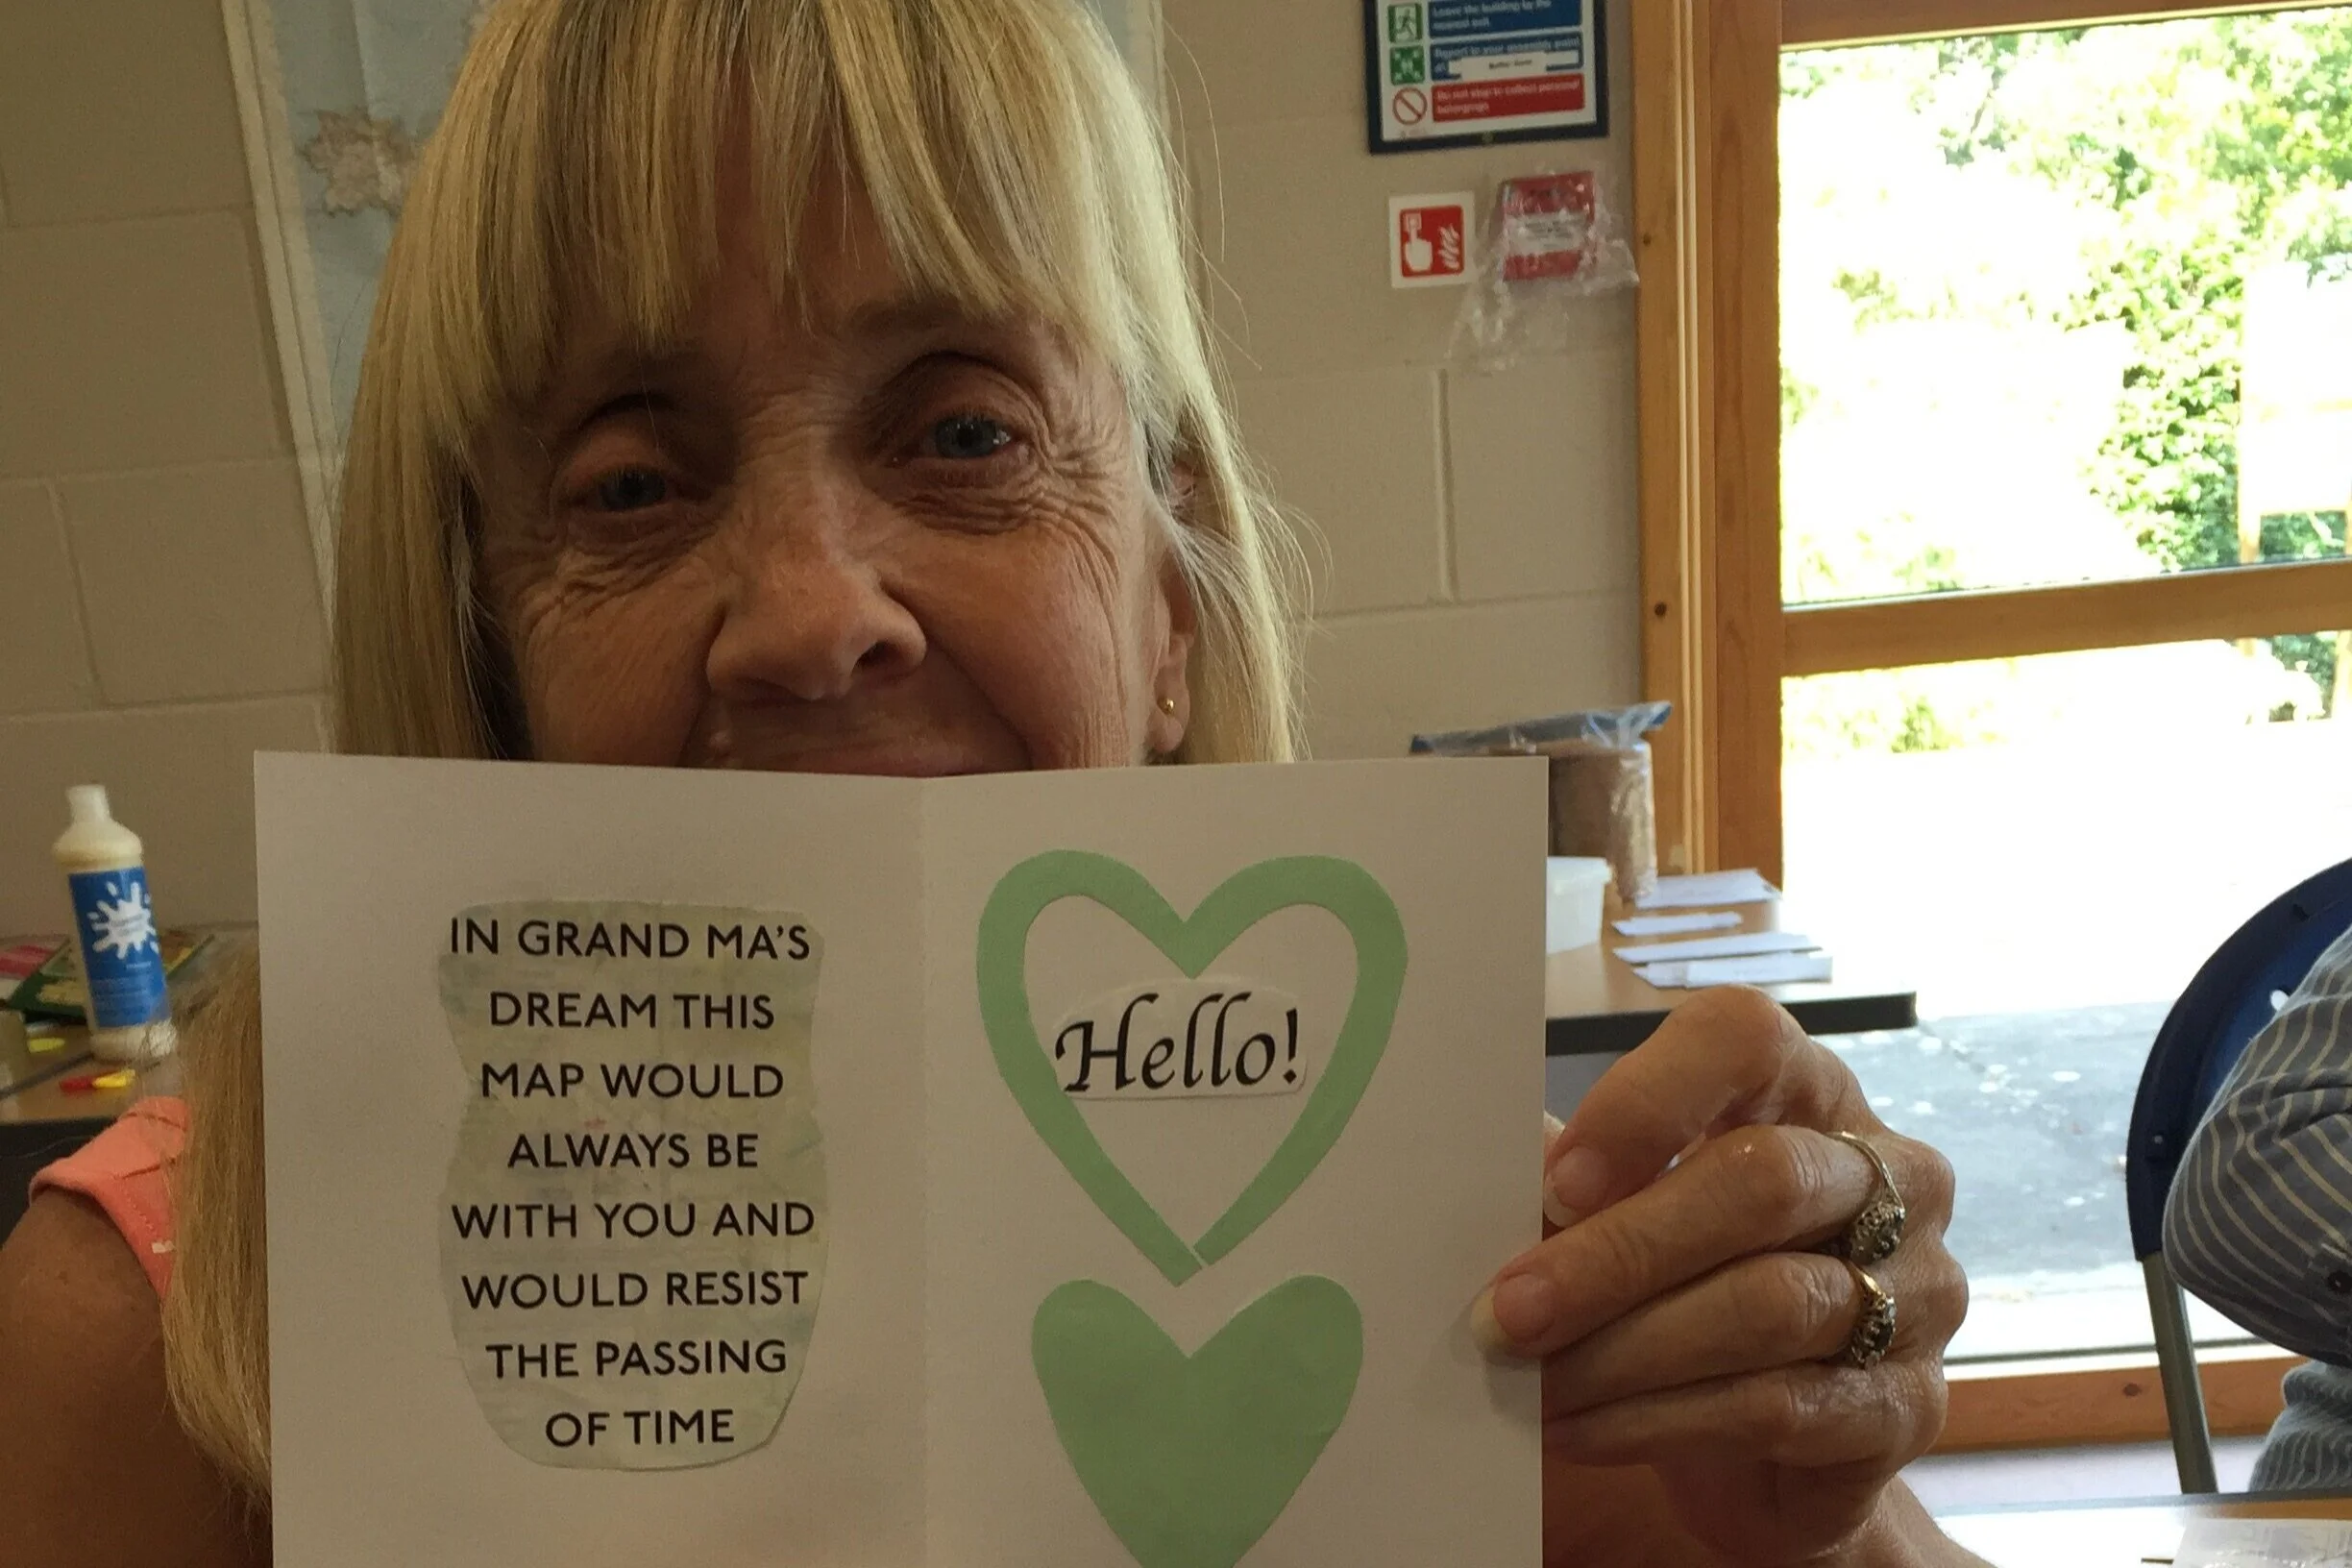 Leave the building by the
nearest exit.
Report to your assembly point
at:
Do not stop to collect personal
belongings
IN GRAND MA'S
DREAM THIS
MAP WOULD
ALWAYS BE
WITH YOU AND
WOULD RESIST
THE PASSING
OF TIME
Hello!